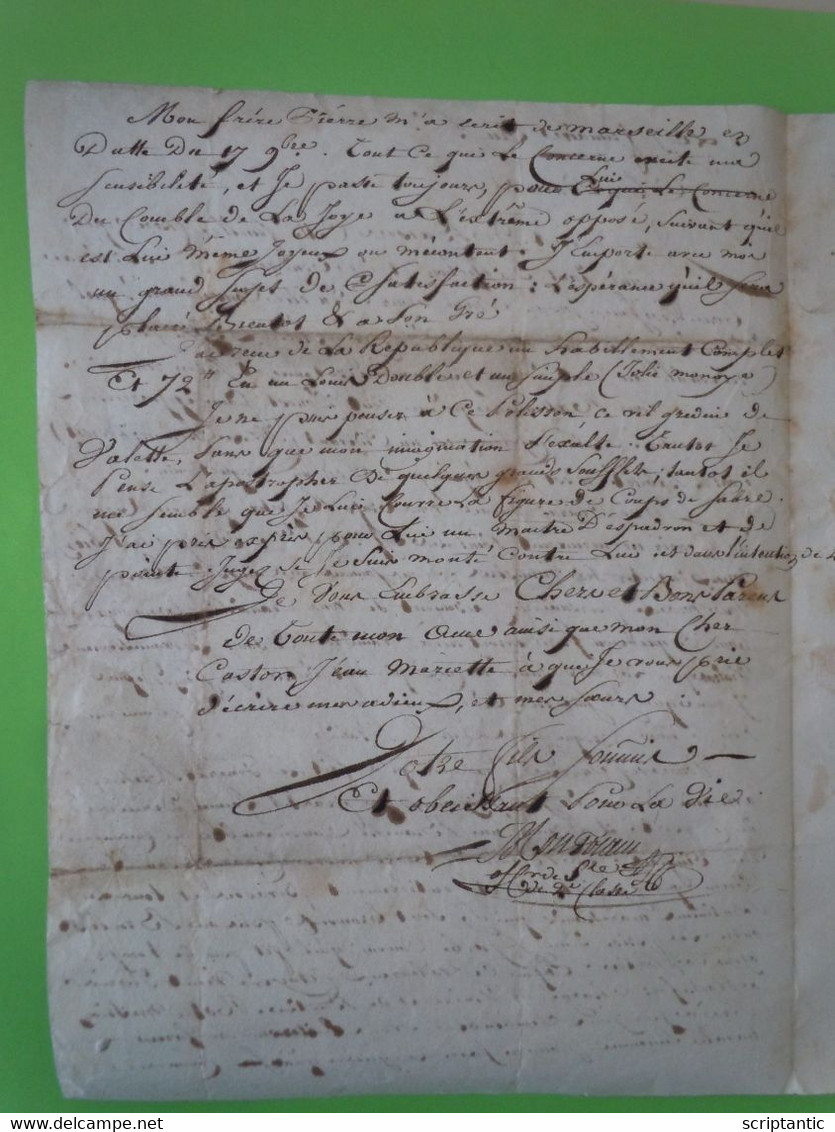 Mon frère Pierre m'a ecrit de marseille en
Datte Du 17 9bre. Tout ce que Le Concerne excite ma
Lui
sensibilité, et Je passe toujours, pour ce qui Le Concerne
Du Comble de La Joye a L'extrême opposé, suivant qu'il
est Lui même Joyeux ou mécontent. J'emporte avec moi
un grand sujet de Satisfaction: L'espérance qu'il sera
placé Bientot & a Son Gré
J'ai reçu de La Republique un habillement Complet
Et 72tt En un Louis Double et un simple (Jolie monoye)
Je ne puis penser à Ce Polisson ce vil gredin de
Valette, sans que mon imagination s'exalte. Tantot Je
Pense L'apostropher De quelques grands soufflets; tantot il
me semble que Je Lui fourre La figure de Coups de sabre.
J'ai pris exprès pour Lui un maitre D'espadron et de
pointe. Jugez si Je suis monté Contre Lui et dans l'intention de
Je Vous Embrasse Chers et Bons Parens
De Toute mon Ame ainsi que mon Cher
Caston Jean Mariette à que Je vous prie
d'écrire mes adieux, et mes sœurs.
Votre fils soumis
Et obeissant Pour La Vie
offer de Sté
de 2e Classe
scriptantic